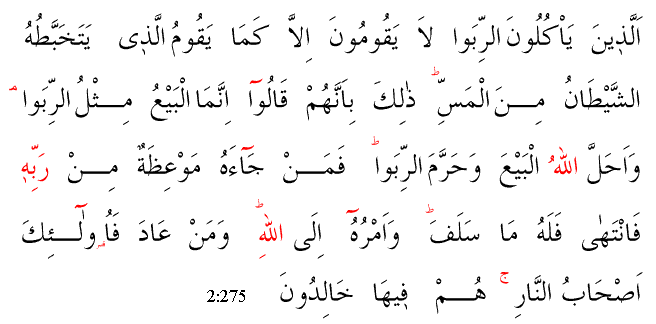 اَلَّذٖينَ يَاْكُلُونَ الرِّبٰوا لَا يَقُومُونَ اِلَّا كَمَا يَقُومُ الَّذٖى يَتَخَبَّطُهُ
الشَّيْطَانُ مِنَ الْمَسِّۜ ذٰلِكَ بِاَنَّهُمْ قَالُٓوا اِنَّمَا الْبَيْعُ مِثْلُ الرِّبٰواۢ
وَاَحَلَّ اللّٰهُ الْبَيْعَ وَحَرَّمَ الرِّبٰواۜ فَمَنْ جَٓاءَهُ مَوْعِظَةٌ مِنْ رَبِّهٖ
فَانْتَهٰى فَلَهُ مَا سَلَفَۜ وَاَمْرُهُٓ اِلَى اللّٰهِۜ وَمَنْ عَادَ فَاُو۬لٰٓئِكَ
اَصْحَابُ النَّارِۚ هُمْ فٖيهَا خَالِدُونَ 2:275